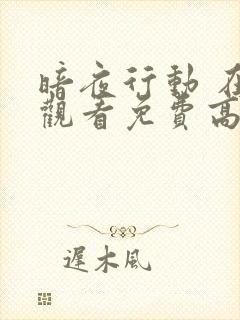 暗夜行動 在
觀看免費高
遲木風